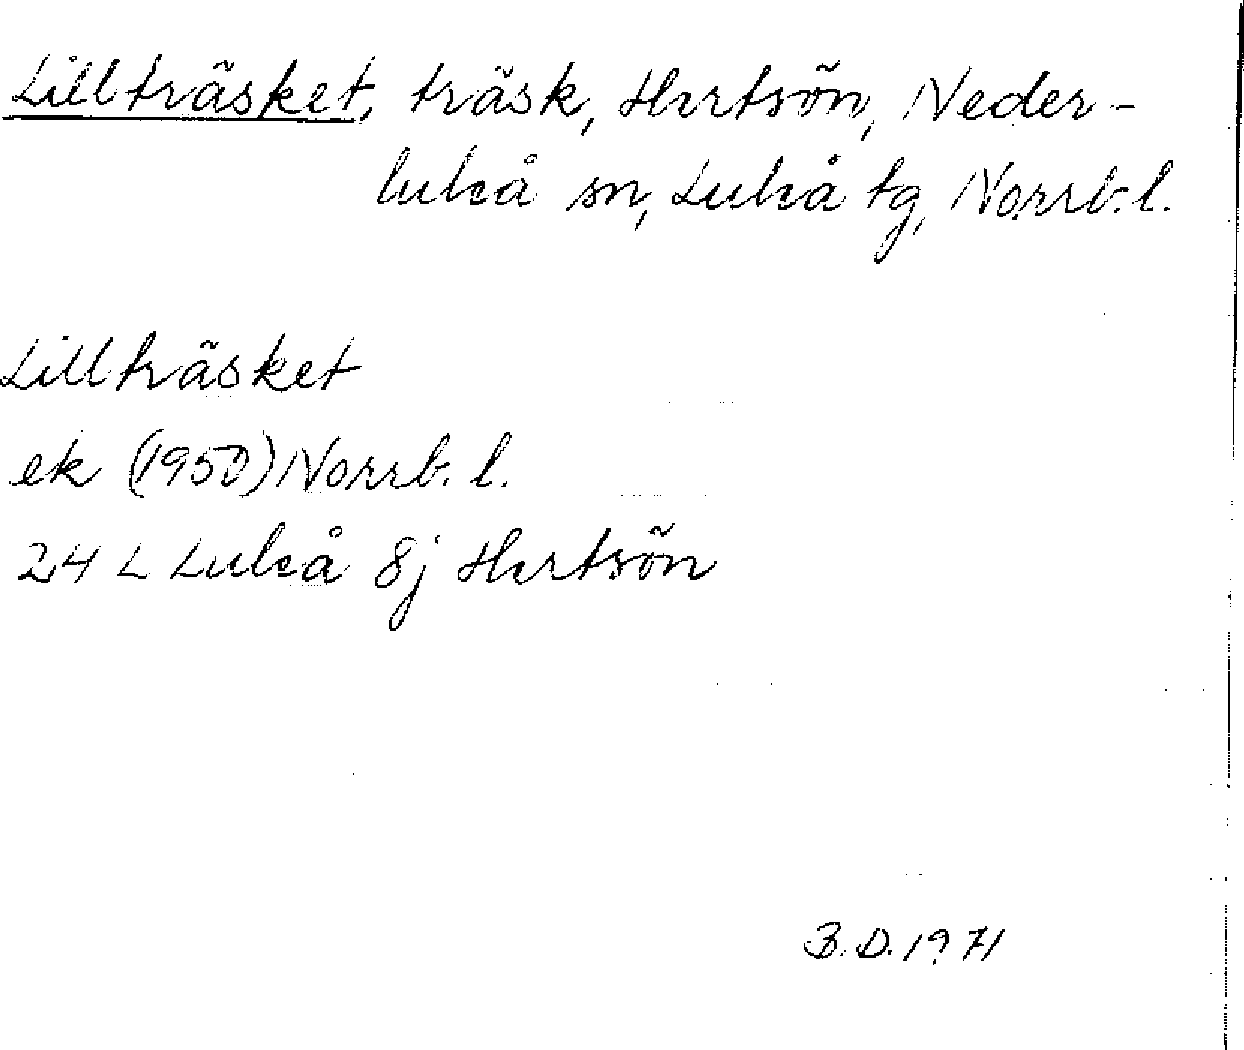 Lillträsket, träsk, Hertsön, Neder-
luleå sn, Luleå tg, Norrb. l.
Lillträsket
ek (1950) Norrb. l.
24 L Luleå 8j Hertsön
B. D. 1971